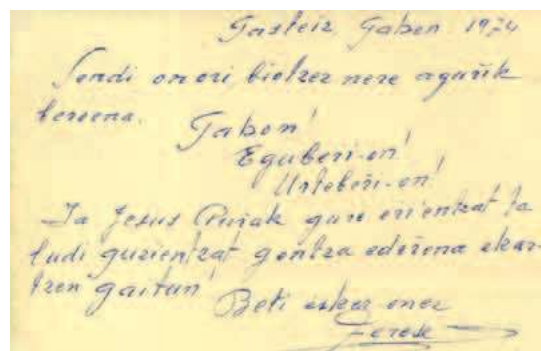 Gasteiz, Gabon 1974
Sendi onori, biotzez nere agurik
beroena.
Gabon!
Eguberi-on!
Urteberi-on!
Ta Jesus Aurak gure erientzat ta
ludi guzientzat gentza ederena ekar-
tzen gaitun!
Beti esker onez